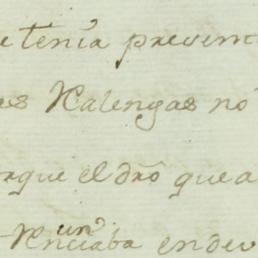 e tenia prevent
es Ralengas nó
rque el dró que a
Renunciaba en dev